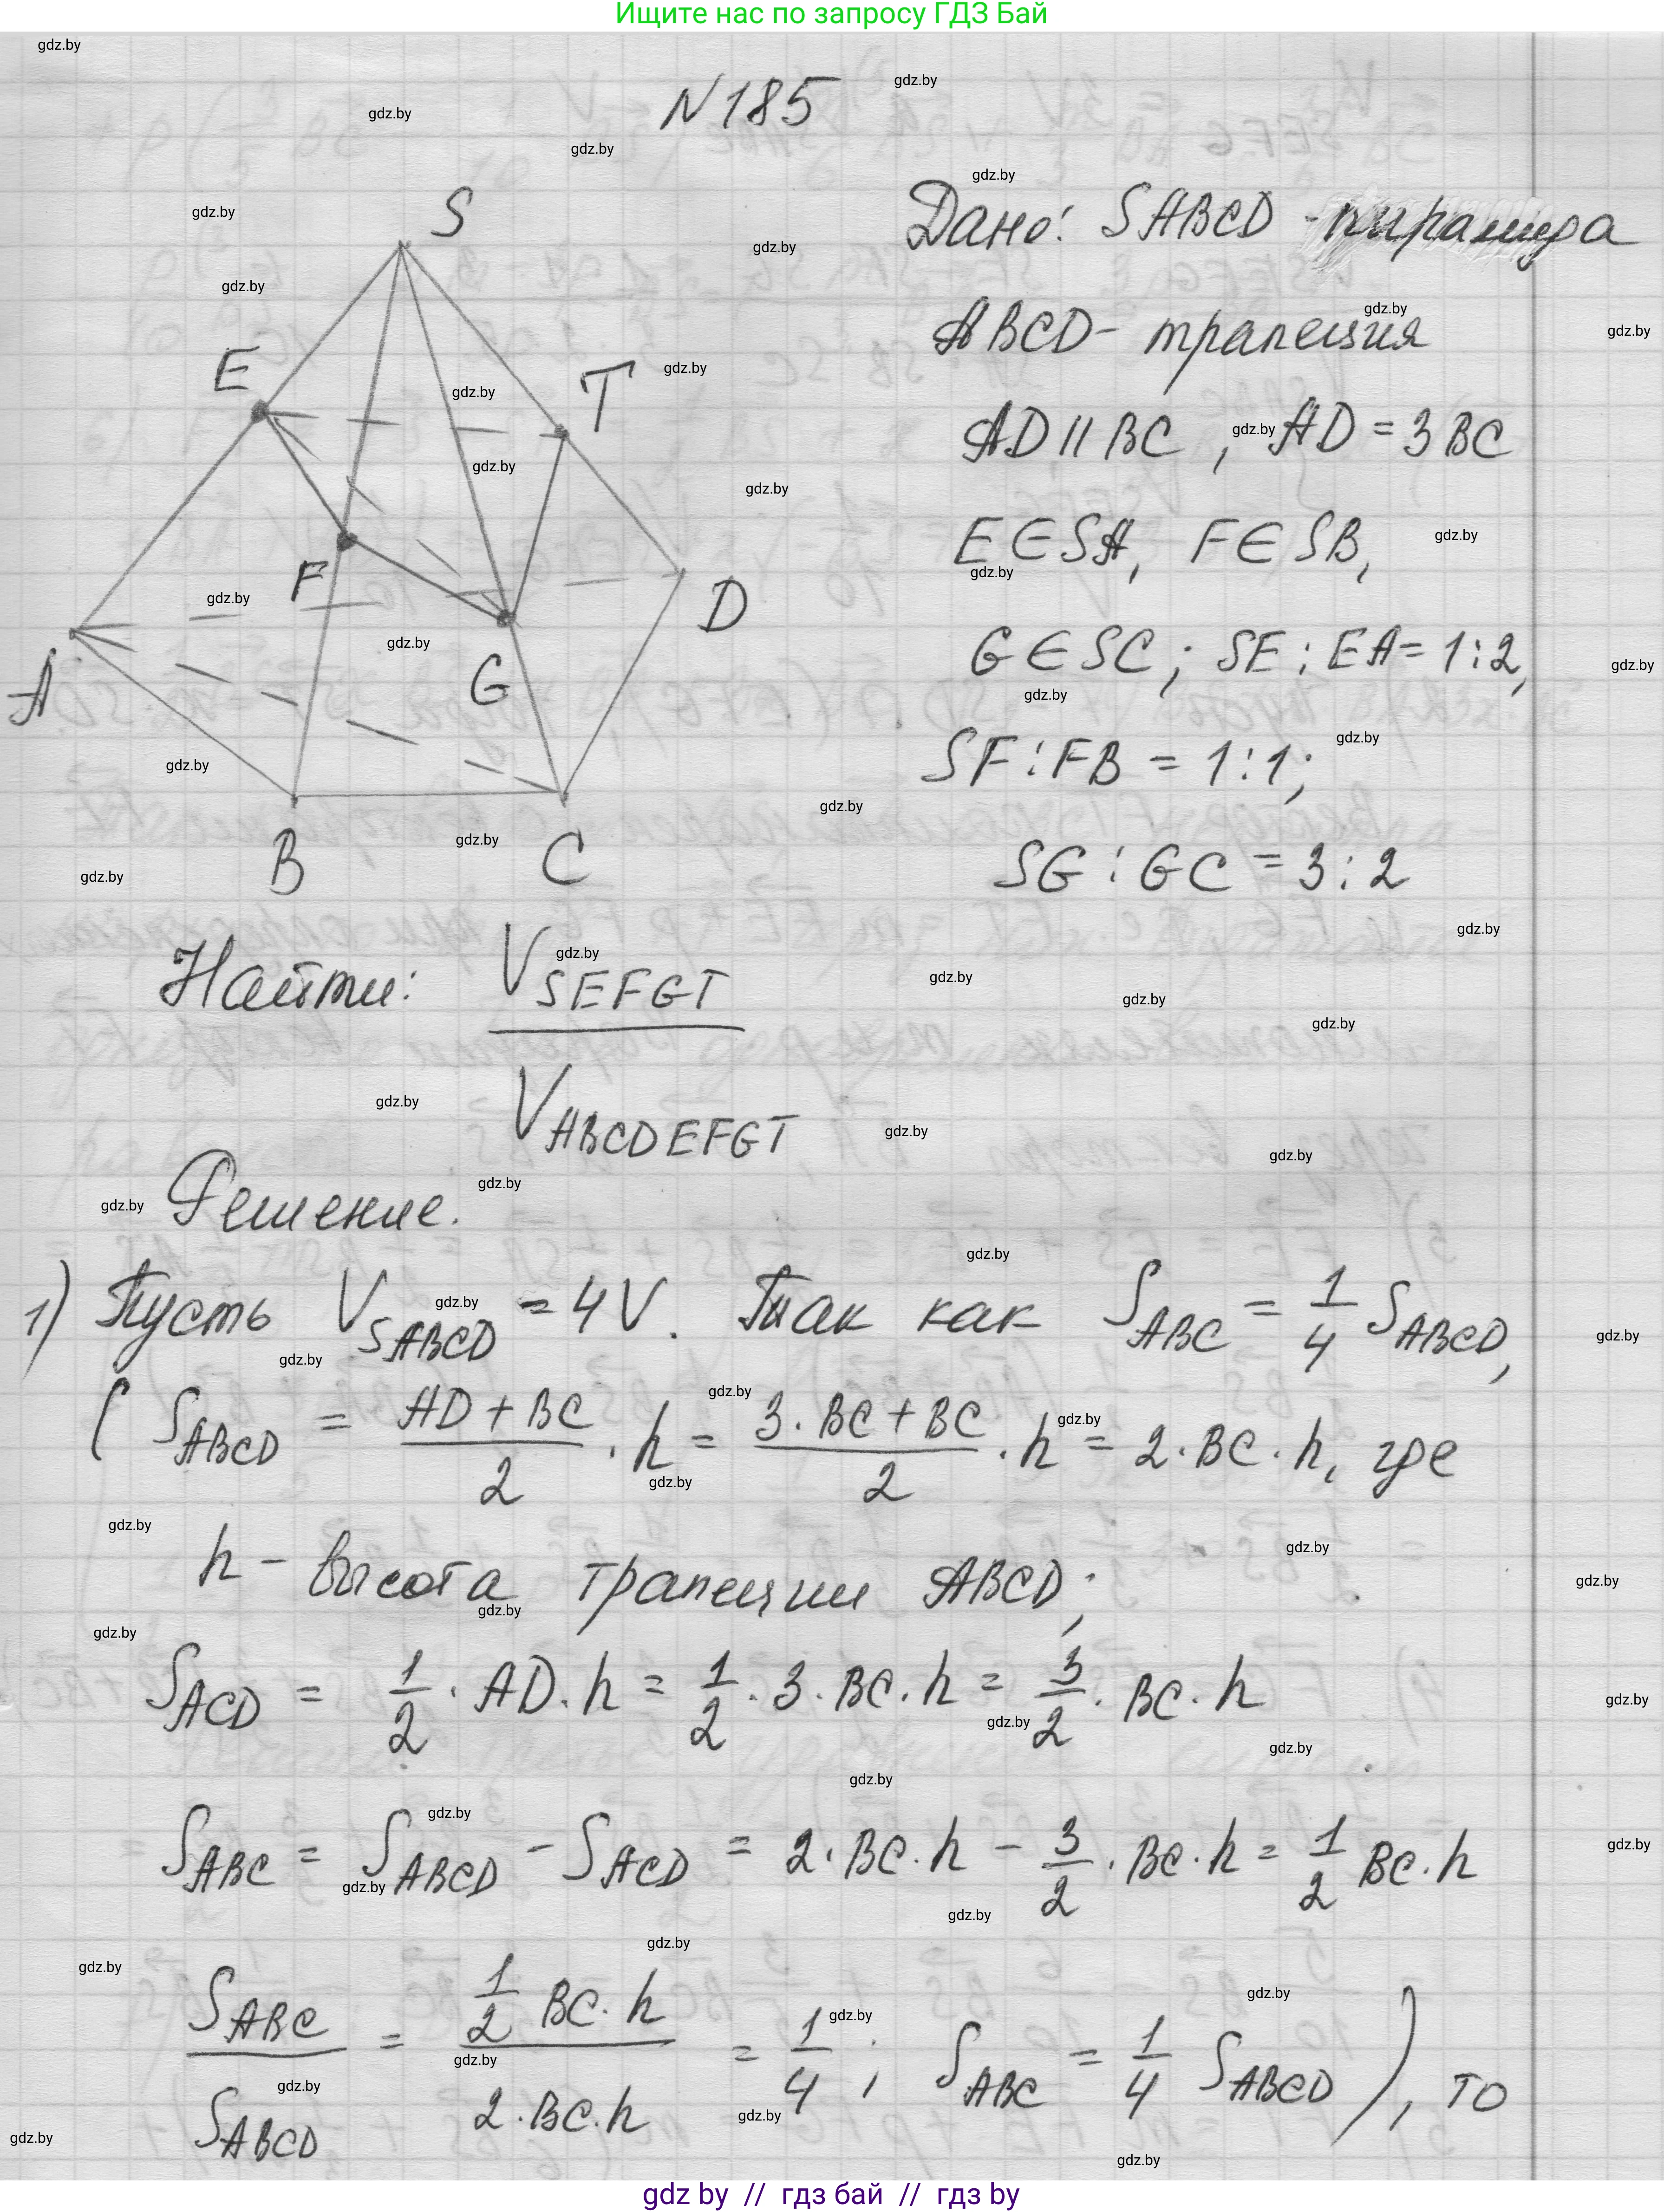 Ищите нас по запросу ГДЗ Бай
N 185
Дано: SABCD - пирамида
ABCD - трапеция
AD || BC, AD = 3 BC
E ∈ SA, F ∈ SB,
G ∈ SC; SE : EA = 1:2,
SF : FB = 1:1;
SG : GC = 3:2
S
E
T
F
D
A
G
B
C
Найти: V SEFGT / V ABCDEFGT
Решение.
1) Пусть V SABCD = 4V. Так как S ABC = 1/4 S ABCD,
( S ABCD = (AD + BC)/2 · h = (3 · BC + BC)/2 · h = 2 · BC · h, где
h - высота трапеции ABCD;
S ACD = 1/2 · AD · h = 1/2 · 3 · BC · h = 3/2 · BC · h
S ABC = S ABCD - S ACD = 2 · BC · h - 3/2 · BC · h = 1/2 BC · h
S ABC / S ABCD = (1/2 BC · h) / (2 · BC · h) = 1/4; S ABC = 1/4 S ABCD ), то
gdz.by
gdz by // гдз бай // гдз by